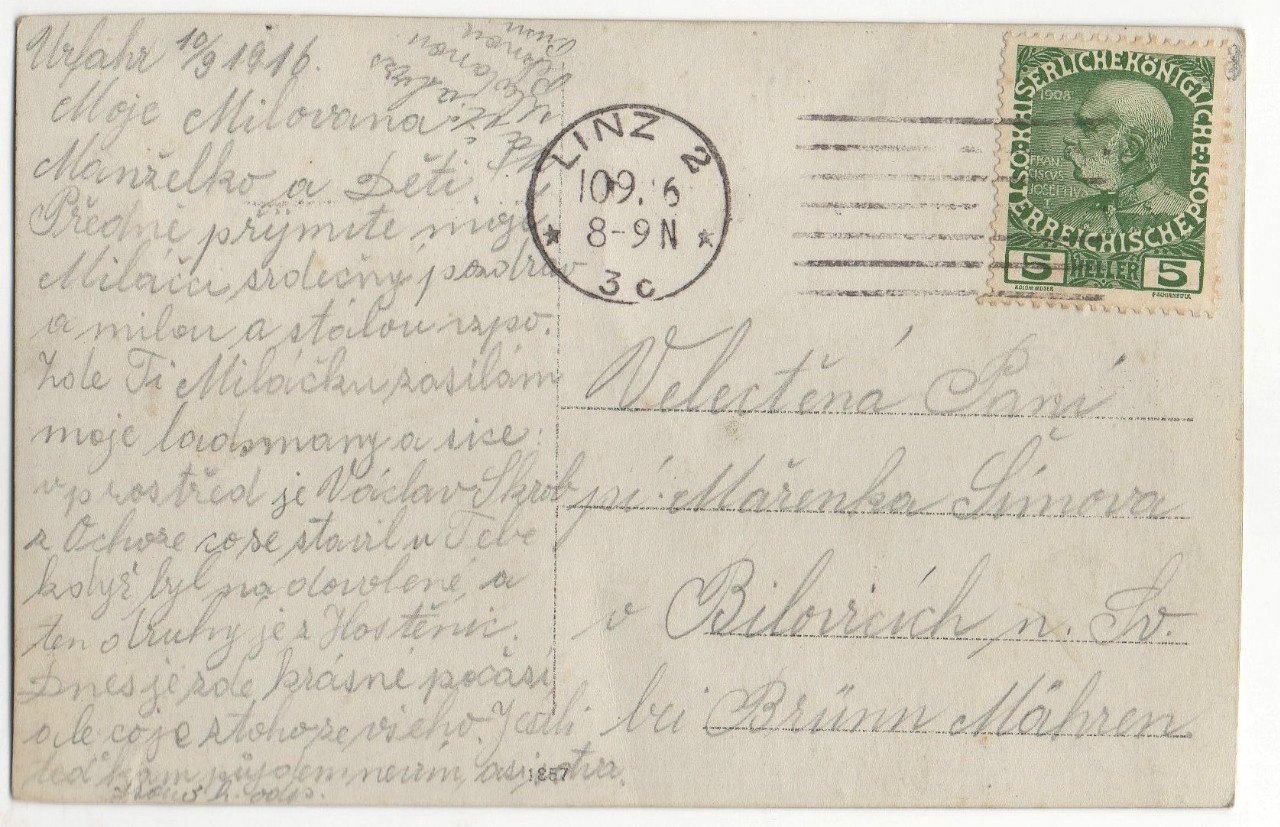 Urfahr 10/9 1916.
Moje Milovaná
Manželko a Děti
Předně přijmite moje
Miláčci srdečný pozdrav
a milou a stálou vzpo.
Zde Ti Miláčku zasilám
moje ladsmany a sice
v prostřed je Václav Skrob
z Ochoze co se stavil u Tebe
když byl na dovolené, a
ten druhy je z Hostěnic.
Dnes je zde krásné počasi
ale co je z toho ze všeho. Jestli
teď kam půjdem nevim, asi
LINZ 2
10 9. 16
8-9 N
3c
KAISERLICHEKÖNIGLICHE
ÖSTERREICHISCHEPOST
1908
FRAN
CISCVS
IOSEPHVS
I
5 HELLER 5
KOLOM. MOSER
Velectěná Pani
pí. Mařenka Šímova
v Bilovicích n. Sv.
bei Brünn Mähren
1857